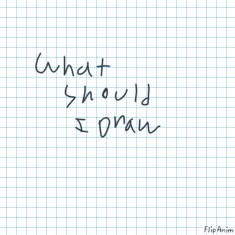 What
should
I Draw
FlipAnim